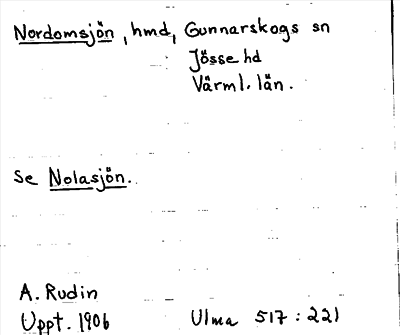 Nordomsjön, hmd, Gunnarskogs sn
Jösse hd
Värml. län.
Se Nolasjön.
A. Rudin
Uppt. 1906 Ulma 517:221